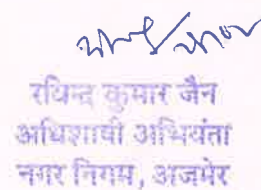 रविन्द्र कुमार जैन
अधिशाषी अभियंता
नगर निगम, अजमेर